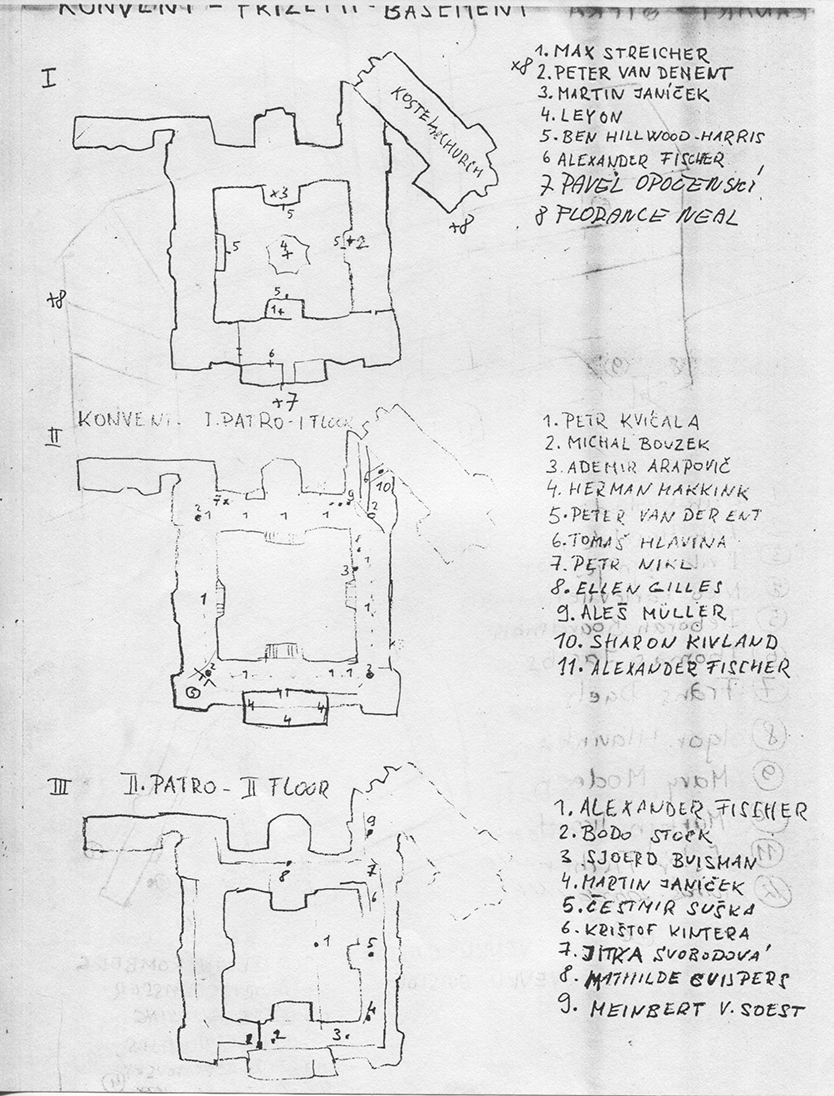 KONVENT - PŘIZEMI - BASEMENT
I
KOSTEL-CHURCH
1. MAX STREICHER
x8 2. PETER VAN DENENT
3. MARTIN JANÍČEK
4. LEYON
5. BEN HILLWOOD-HARRIS
6 ALEXANDER FISCHER
7 PAVEL OPOČENSKÍ
8 FLORANCE NEAL
x3
5
5
4
5
+2
5
1+
6
+7
+8
+8
KONVENT. I. PATRO - I FLOOR
II
1. PETR KVIČALA
2. MICHAL BOUZEK
3. ADEMIR ARAPOVIČ
4. HERMAN MAKKINK
5. PETER VAN DER ENT
6. TOMAŠ HLAVINA
7. PETR NIKL
8. ELLEN GILLES
9. ALEŠ MÜLLER
10. SHARON KIVLAND
11. ALEXANDER FISCHER
III
II. PATRO - II FLOOR
1. ALEXANDER FISCHER
2. BODO STOCK
3. SJOERD BUISMAN
4. MARTIN JANÍČEK
5. ČESTMIR SUŠKA
6. KRIŠTOF KINTERA
7. JITKA SVOBODOVÁ
8. MATHILDE CUIJPERS
9. MEINBERT V. SOEST
9
8
7
6
1
5
4
2
2
3